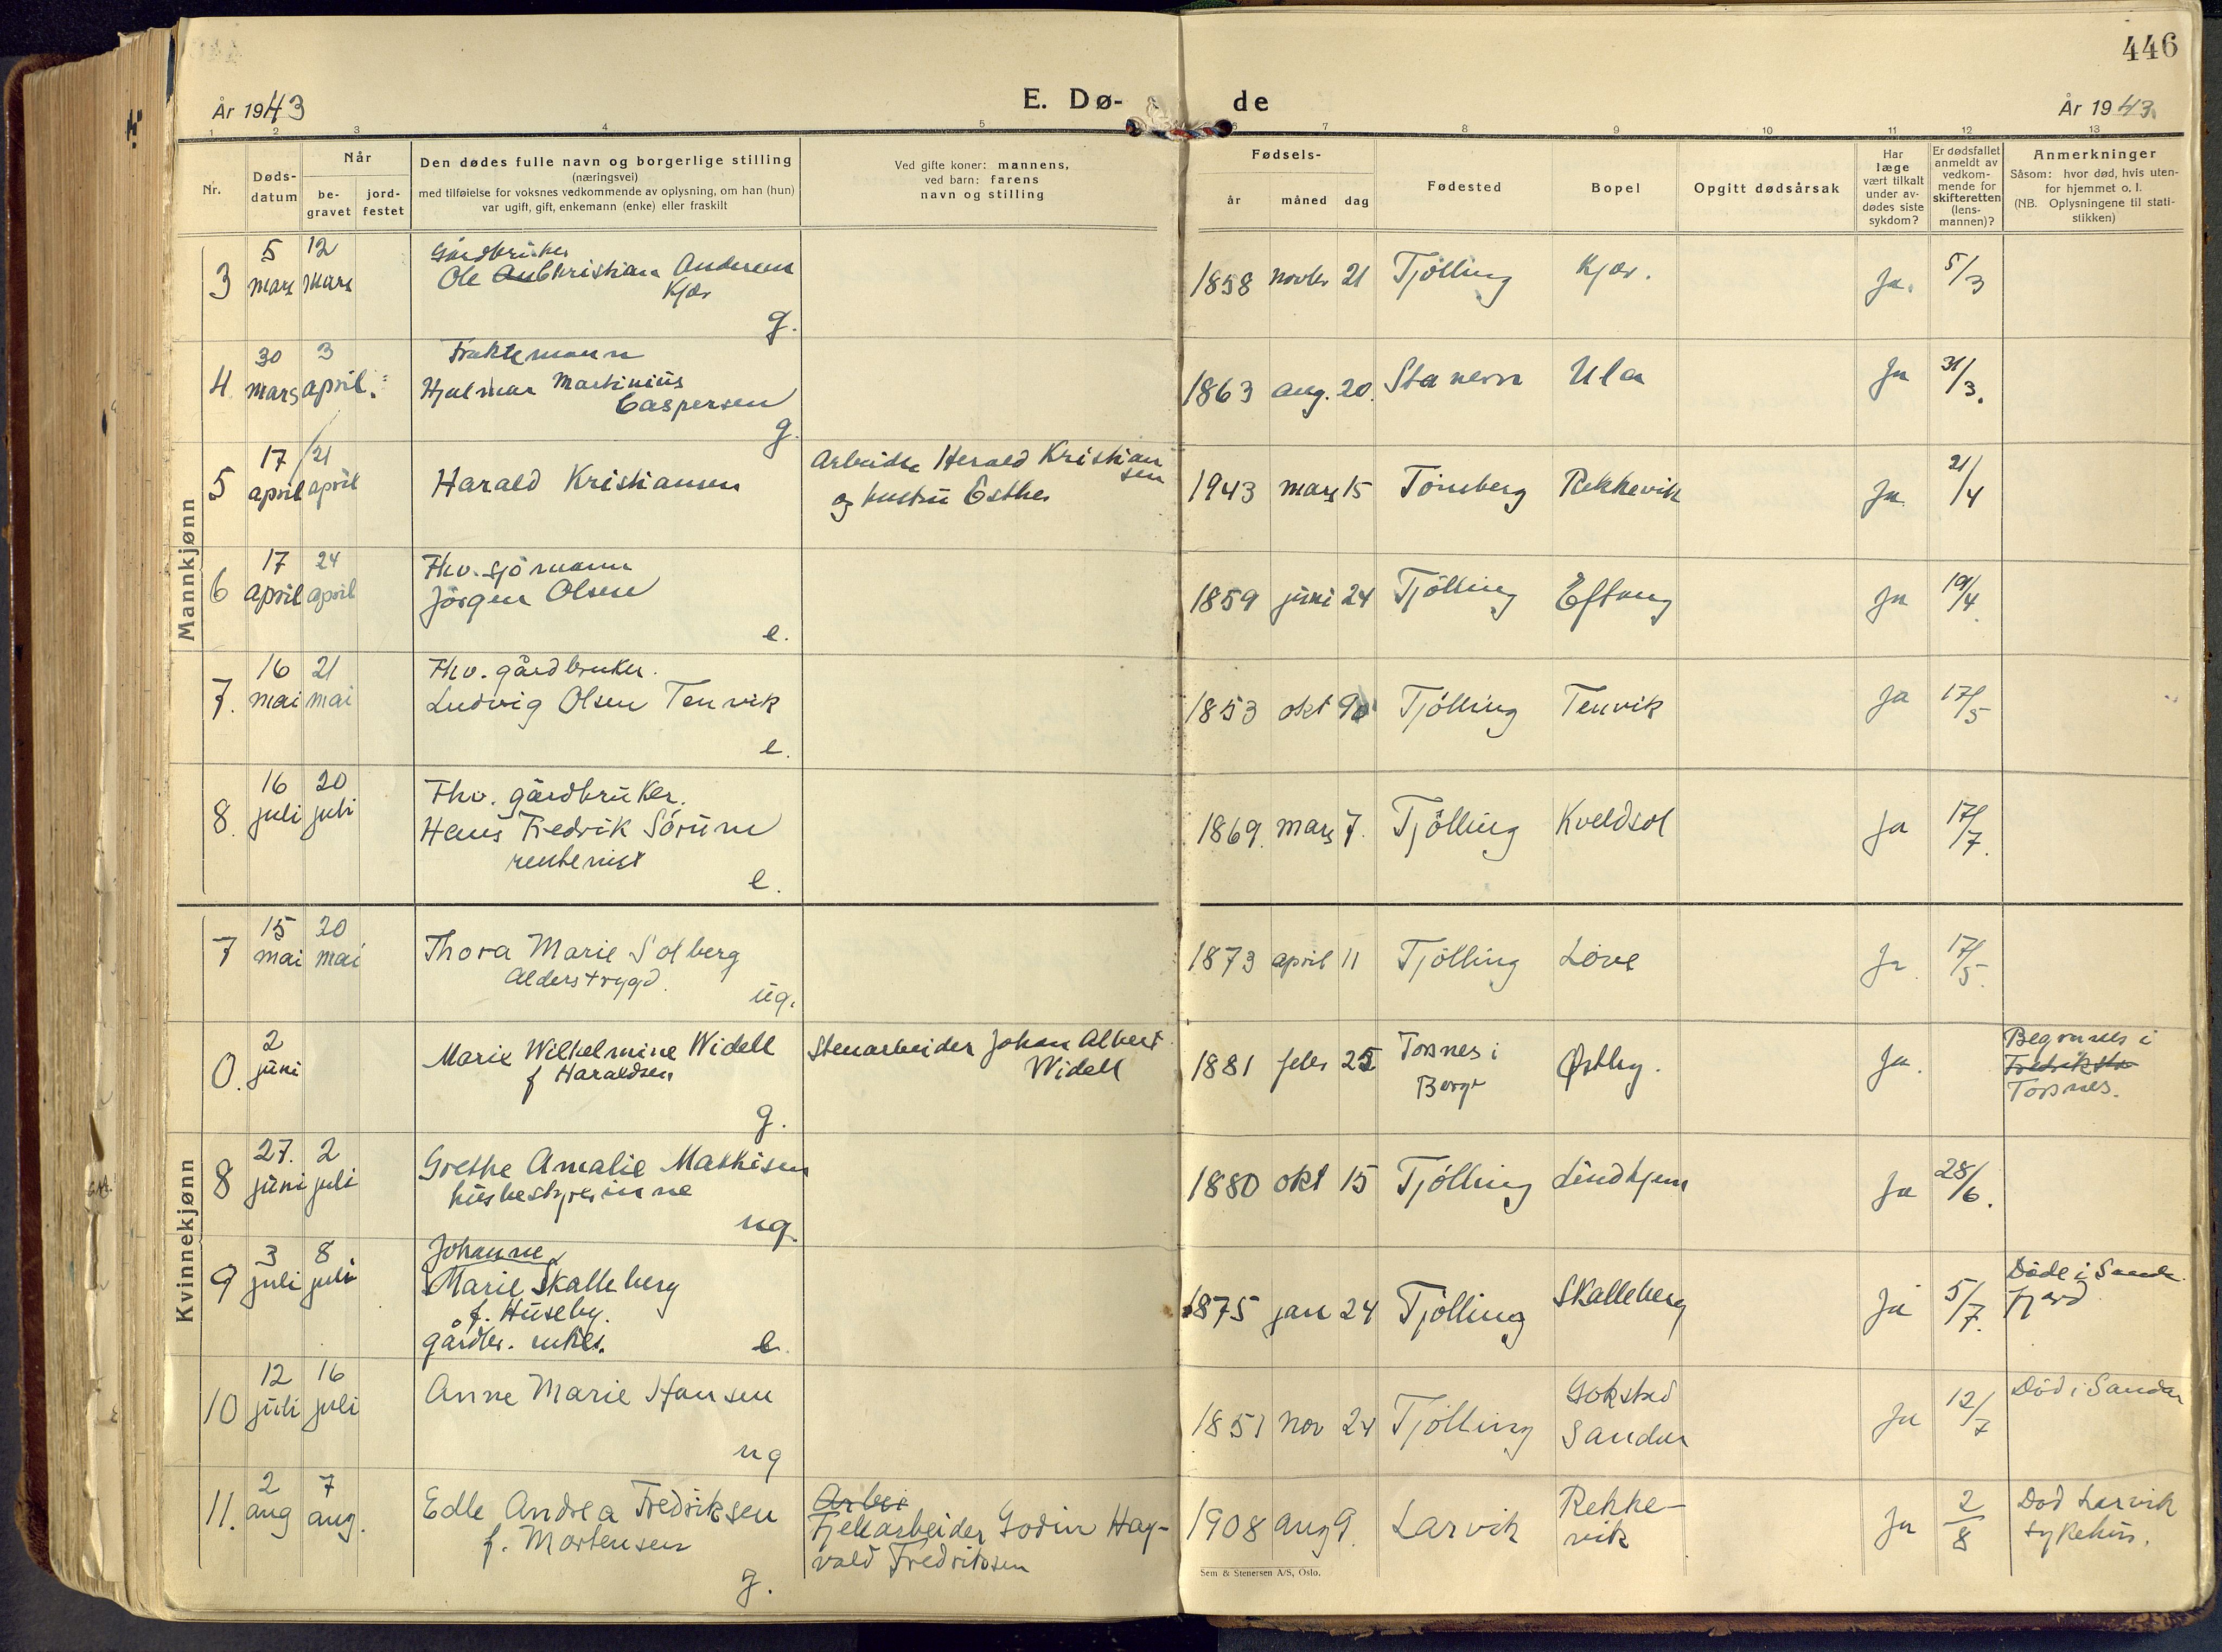 446
År 1943
E. Dø- de
År 1943.
1 2 3 4 5 7 8 9 10 11 12 13
Nr.
Døds-
datum
Når
be-
gravet
jord-
festet
Den dødes fulle navn og borgerlige stilling
(næringsvei)
med tilføielse for voksnes vedkommende av oplysning, om han (hun)
var ugift, gift, enkemann (enke) eller fraskilt
Ved gifte koner: mannens,
ved barn: farens
navn og stilling
Fødsels-
år måned dag
Fødested
Bopel
Opgitt dødsårsak
Har
læge
vært tilkalt
under av-
dødes siste
sykdom?
Er dødsfallet
anmeldt av
vedkom-
mende for
skifteretten
(lens-
mannen)?
Anmerkninger
Såsom: hvor død, hvis uten-
for hjemmet o. l.
(NB. Oplysningene til stati-
stikken)
Mannkjønn
3
5
mars
12
mars
Gårdbruker
Ole Kristian Andersen
Kjær
g.
1858 novbr 21 Tjölling Kjær. Ja. 5/3
4
30
mars
3
april.
Fraktemann
Hjalmar Martinius
Caspersen
g.
1863 aug. 20. Stavern Ula Ja 31/3.
5
17
april
21
april
Harald Kristiansen
Arbeider Herald Kristian
sen
og hustru Esther
1943 mars 15 Tönsberg Rekkevik Ja 21/4
6
17
april
24
april
Fhv. sjömann
Jörgen Olsen
e.
1859 juni 24 Tjölling Eftang Ja 19/4.
7.
16
mai
21
mai
Fhv. gårdbruker.
Ludvig Olsen Tenvik
e.
1853 okt Tjölling Tenvik Ja 17/5
8.
16
juli
20
juli
Fhv. gårdbruker.
Hans Fredrik Sörum
rentenist
e.
1869. mars 7. Tjölling Kveldsol Ja 17/7.
Kvinnekjønn
7
15
mai
20
mai
Thora Marie Solberg
Alderstrygd.
ug.
1873 april 11 Tjölling Löve Ja 17/5.
0.
2
juni
Marie Wilhelmine Widell
f Haraldsen
g.
Stenarbeider Johan Albert
Widell
1881 febr 25 Torsnes i
Borge
Østby. Ja.
Begravees i
Fredriksta
Torsnes.
8
27.
juni
2
juli
Grethe Amalie Mathisen
husbestyrerinne
ug.
1880 okt 15 Tjölling Lindhjem Ja 28/6.
9
3
juli
8
juli
Johanne
Marie Skalleberg
f. Huseby.
gårdbr. enke.
e.
1875 jan 24 Tjölling Skalleberg Ja 5/7.
Döde i Sande
fjord
10
12
juli
16
juli
Anne Marie Hansen
ug
1851 nov 24 Tjölling Gokstad
Sandar
Ja 12/7
Död i Sandar
11.
2
aug
7
aug.
Edle Andrea Fredriksen
f. Mortensen
g.
Arbei
Fjellarbeider Godin Hag-
vald Fredriksen
1908 aug 9. Larvik Rekke-
vik
Ja 2/8
Död Larvik
sykehus.
Sem & Stenersen A/S, Oslo.